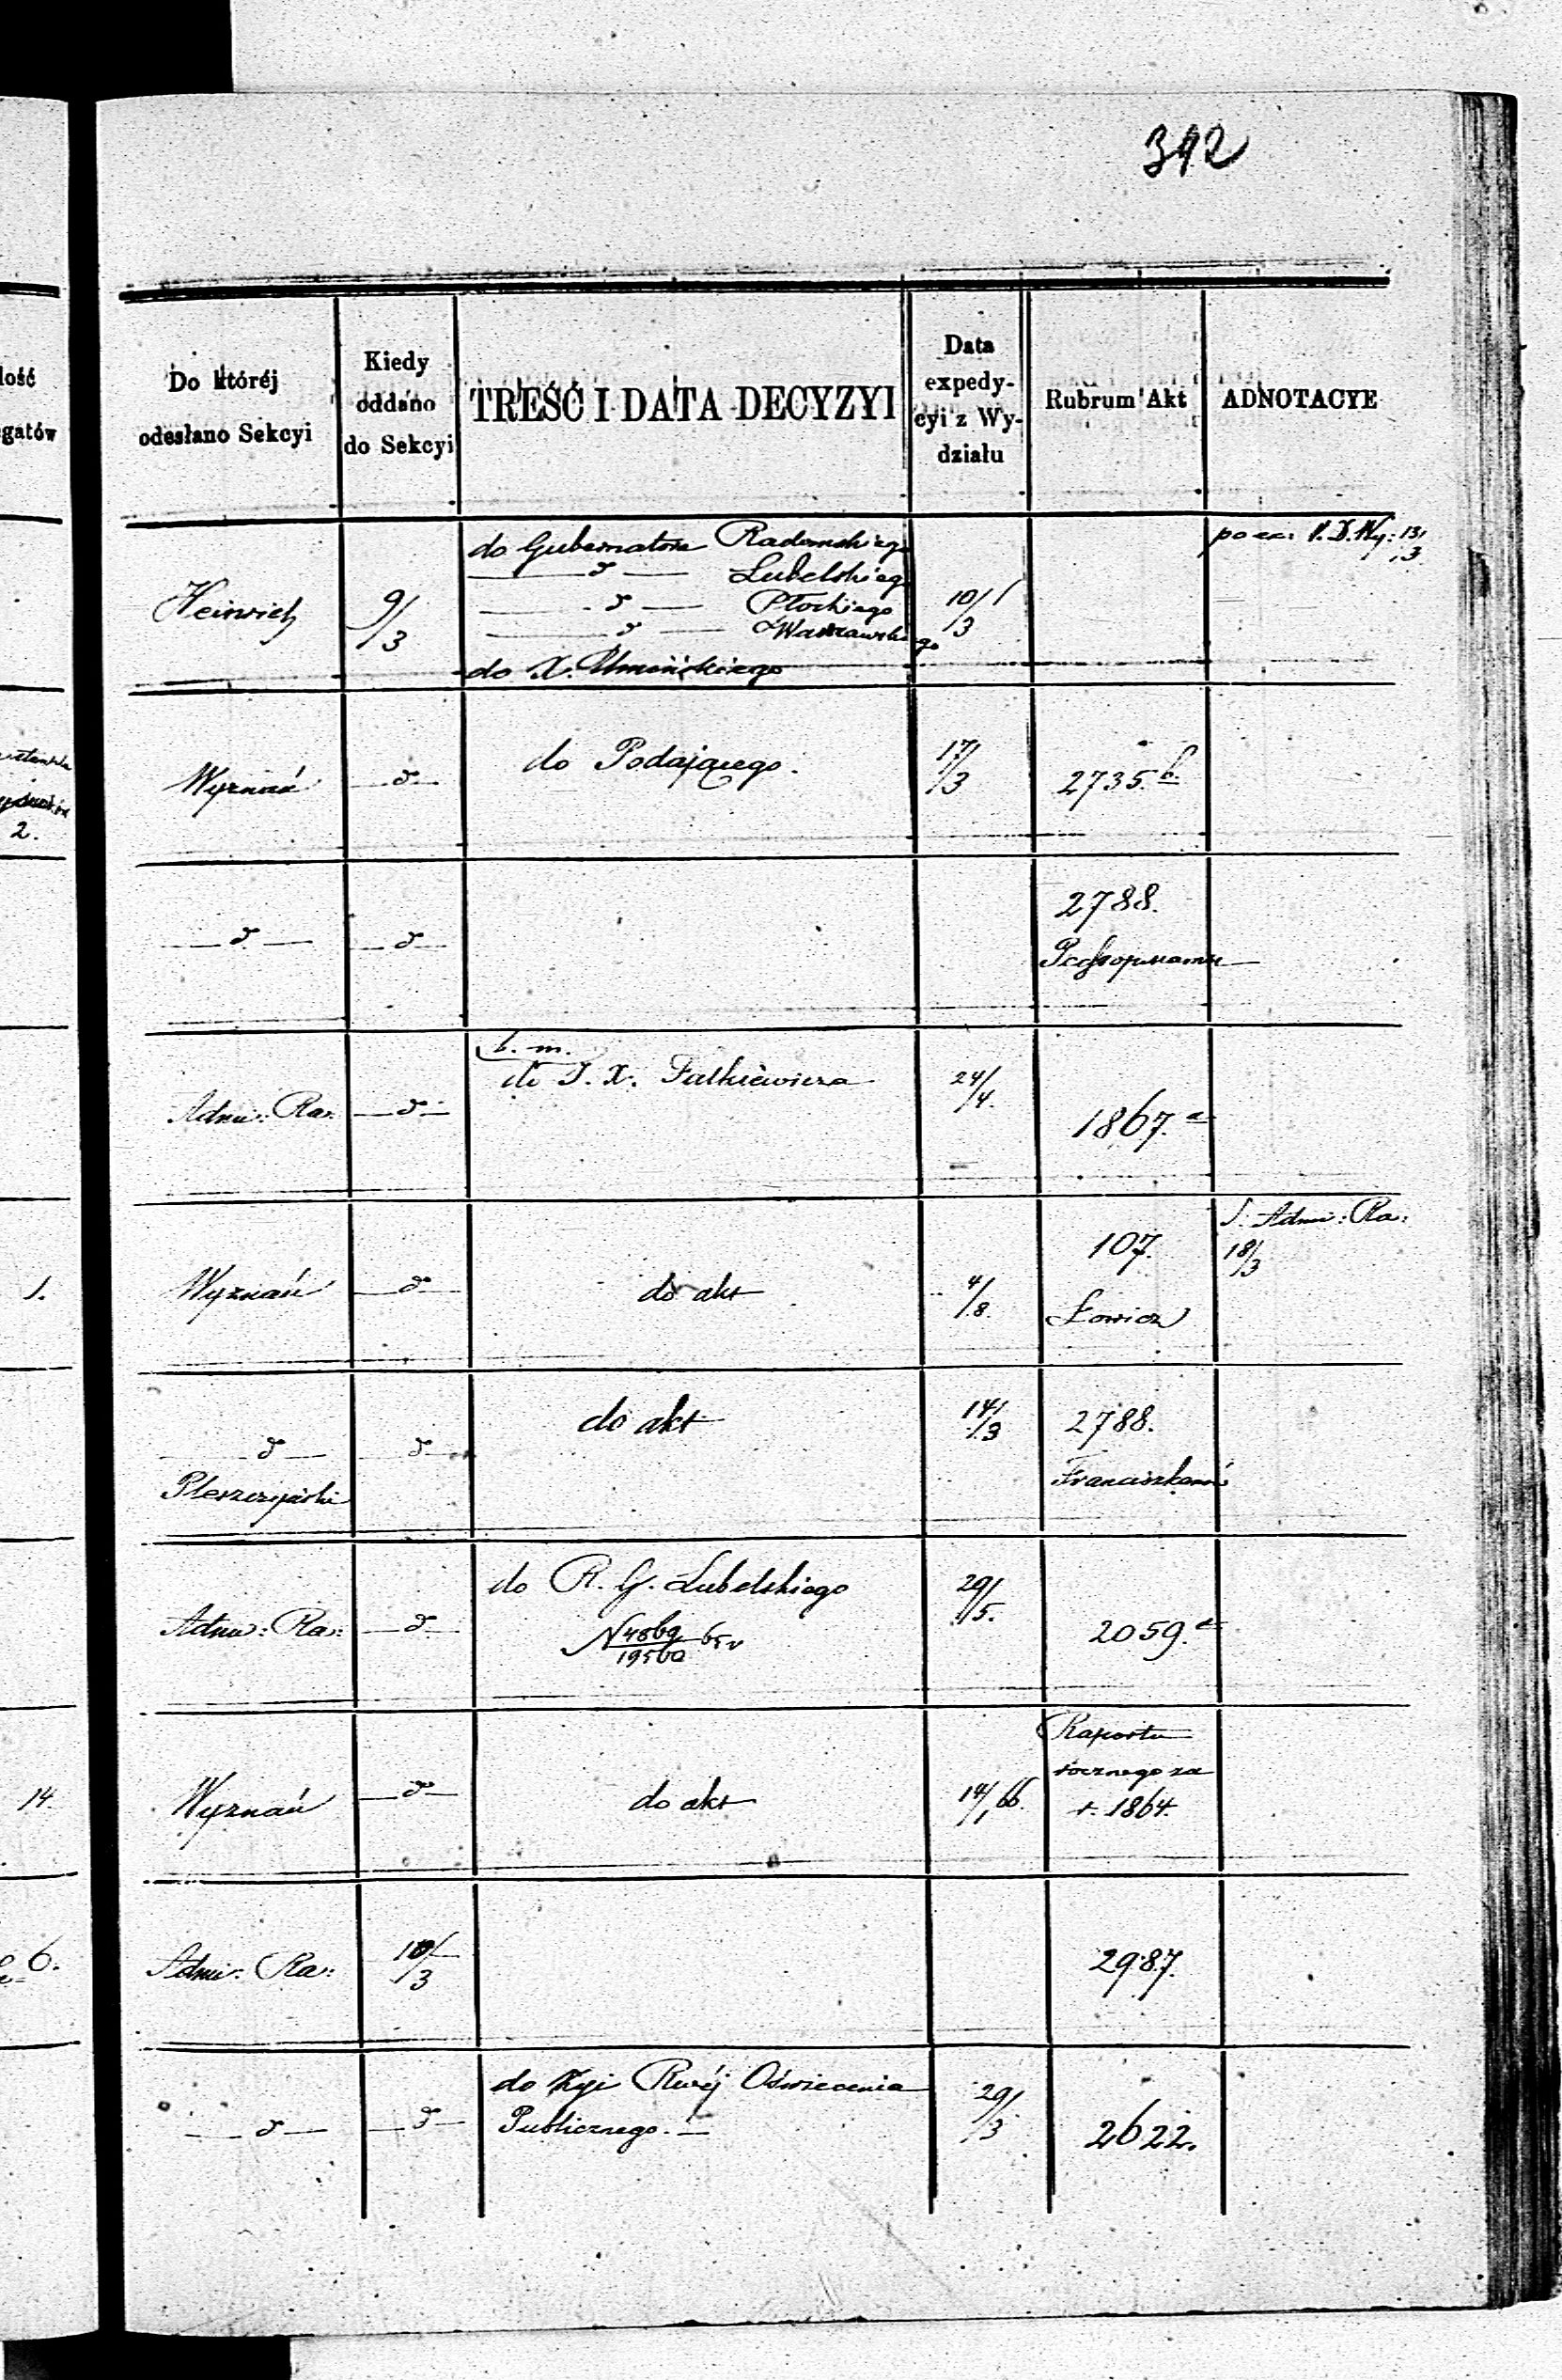 342
lość
gatów
Do któréj
odesłano Sekcyi
Kiedy
oddano
do Sekcyi
TREŚĆ I DATA DECYZYI
Data
expedy-
cyi z Wy-
działu
Rubrum Akt
ADNOTACYE
Heinrich
9/3
do Gubernatora Radomskiego
— d — Lubelskiego
— d — Płockiego
— d — Warszawskiego
do X.
10/3
13/3
2.
Wyznań
— d —
do Podającego.
17/3
2735.b.
— d —
— d —
2788.
Adm: Ra:
— d —
b. m.
do J. X. Falkiewicza
24/4.
1867.a
1.
Wyznań
— d —
do akt
4/8.
107.
Łowicz
S. Adm: Ra:
18/3
— d —
Pleszczyński
— d —
do akt
14/3
2788.
Franciszkanów
Adm: Ra:
— d —
do R. G. Lubelskiego
N 4869/19560 65 r
29/5.
2059.a
14.
Wyznań
— d —
do akt
14/1 66.
Raportu
rocznego za
r. 1864.
6.
Adm: Ra:
10/3
2987.
— d —
— d —
do Kyi Rwéj Oświecenia
Publicznego. —
29/3
2622.